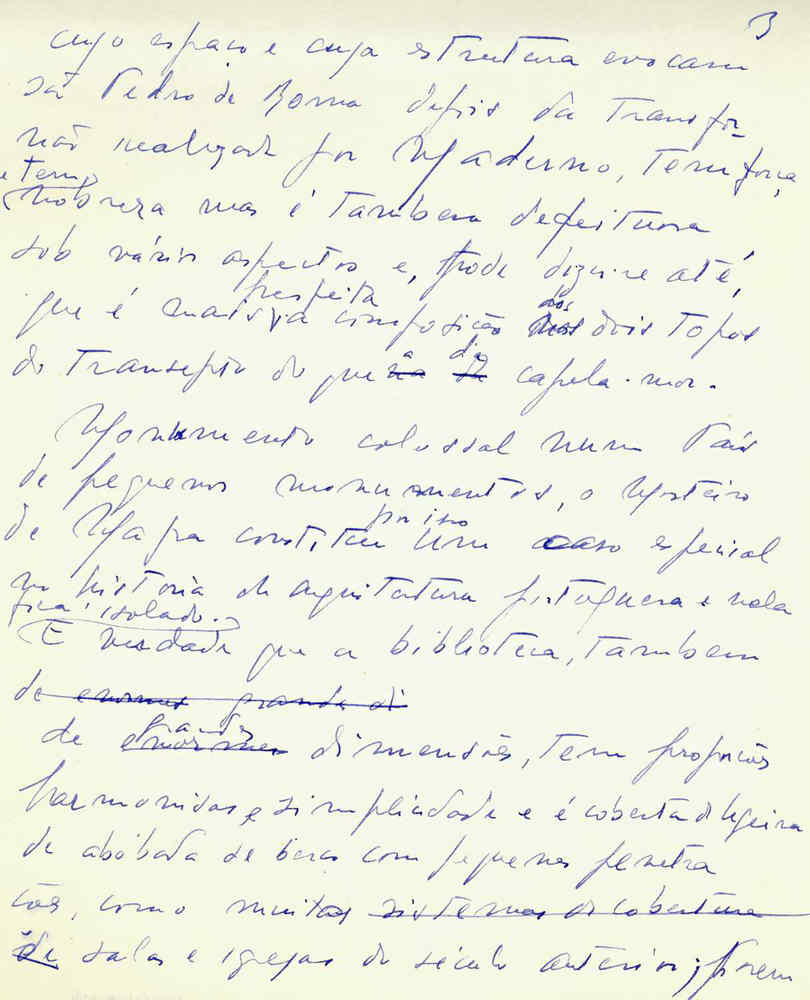 3
cujo espaço e cuja estrutura evocam
São Pedro de Roma depois da transfor-
mação realizada por Maderno, tem força,
e tem
nobreza mas é tambem defeituosa
sob vários aspectos e, pode dizer-se até,
respeita
que é mais a composição nas dos dois topos
do transepto do que na a da capela-mor.
Monumento colossal num País
de pequenos monumentos, o Mosteiro
por isso
de Mafra constitui um caso especial
na historia da arquitectura portuguesa e nela
fica isolado.
É verdade que a biblioteca, tambem
de enormes grande di
grandes
de enormes dimensões, tem proporções
harmonidas e simplicidade e é coberta
de abóbada de berço com pequenas penetra
ções, como muitas sistemas de cobertura
de salas e igrejas do século anterior; porem